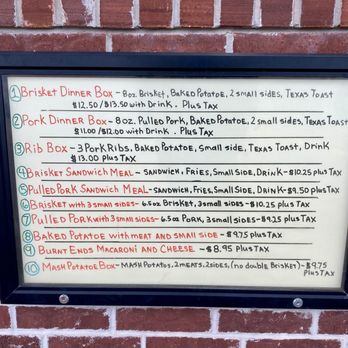 1 Brisket Dinner Box - 8oz Brisket, Baked Potatoe, 2 small sides, Texas Toast
$12.50/$13.50 with Drink. Plus Tax
2 Pork Dinner Box - 8oz. Pulled Pork, Baked Potatoe, 2 small sides, Texas Toast
$11.00/$12.00 with Drink. Plus Tax
3 Rib Box - 3 Pork Ribs, Baked Potatoe, Small side, Texas Toast, Drink
$13.00 Plus Tax
4 Brisket Sandwich Meal - Sandwich, Fries, Small Side, Drink - $10.25 plus Tax
5 Pulled Pork Sandwich Meal - Sandwich, Fries, Small Side, Drink - $9.50 plus Tax
6 Brisket with 3 small sides - 6.5oz Brisket, 3 small sides - $10.25 plus Tax
7 Pulled Pork with 3 small sides - 6.5oz Pork, 3 small sides - $9.25 plus Tax
8 Baked Potatoe with meat and small side - $9.75 plus Tax
9 Burnt Ends Macaroni and Cheese - $8.95 plus Tax
10 Mash Potatoe Box - Mash Potatoe, 2 meats, 2 sides, (no double Brisket) - $9.75
plus Tax